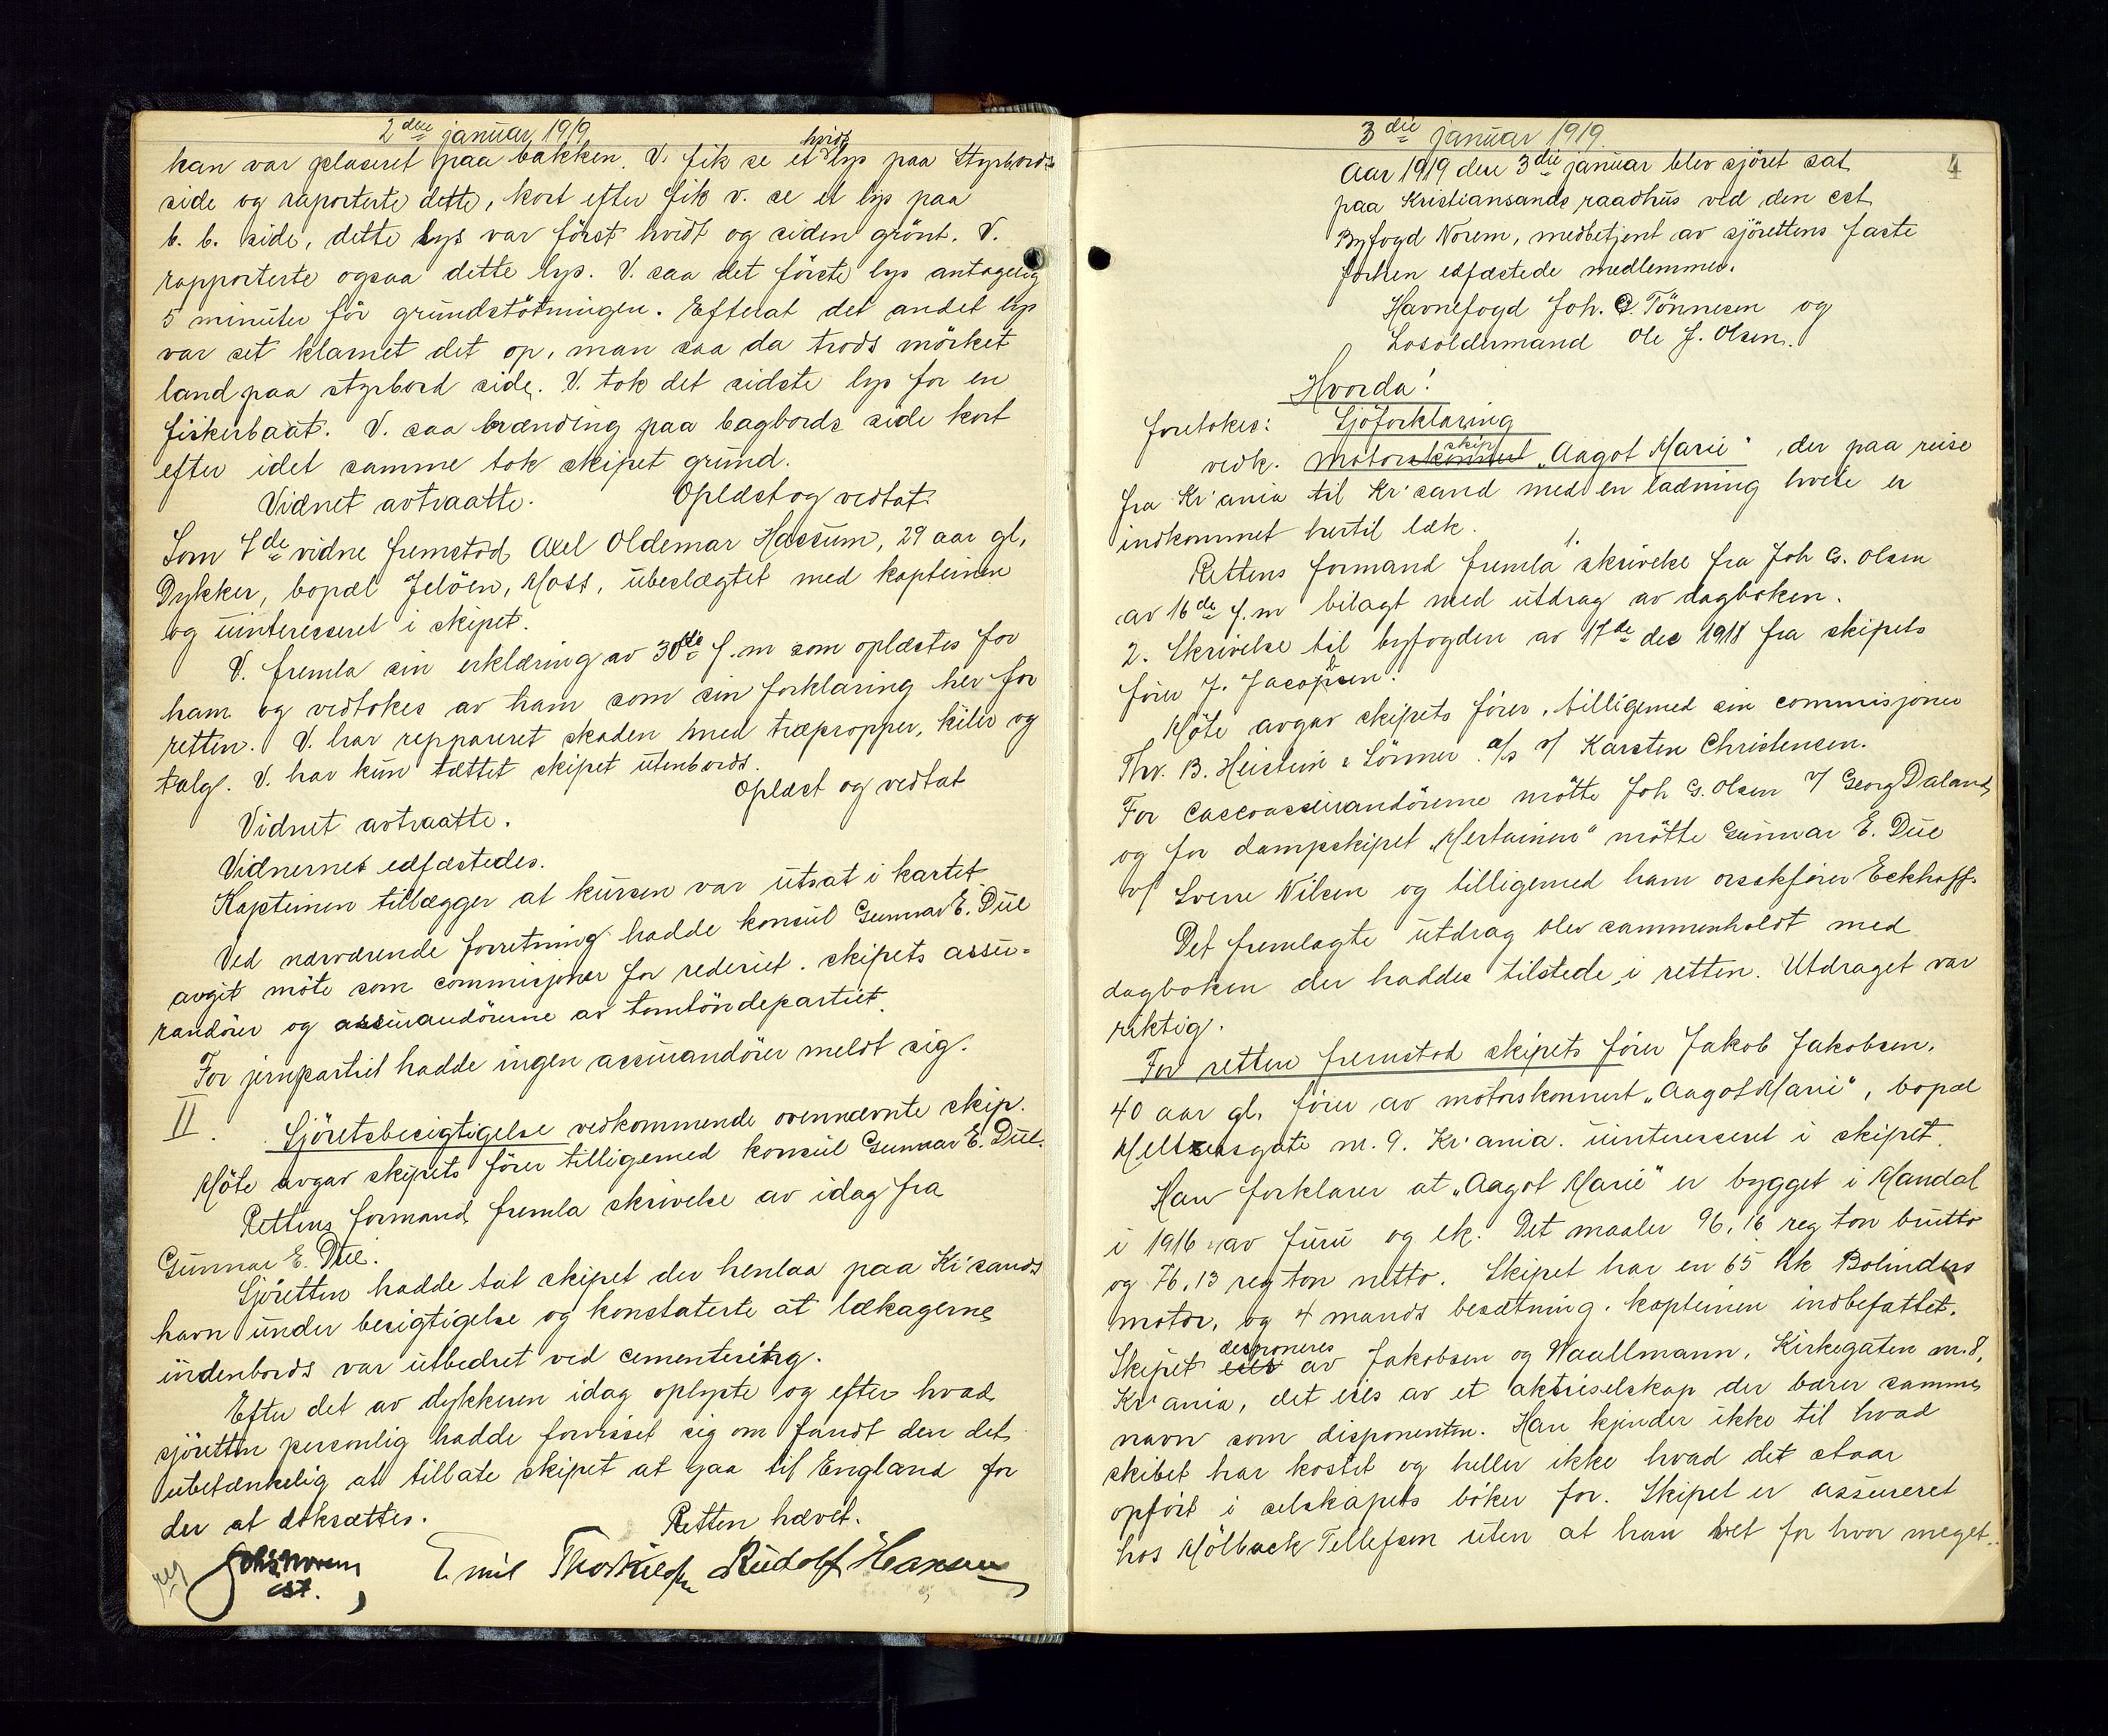 2den januar 1919
han var plaseret paa bakken. V. fik se et hvidt lys paa Styrbords
side og raporterte dette, kort efter fik v. se et lys paa
b. b. side, dette lys var först hvidt og siden grönt. V.
rapporterte ogsaa dette lys. V. saa det förste lys antagelig
5 minuter för grundstötningen. Efterat det andet lys
var set klarnet det op, man saa da trods mörket
land paa styrbord side. V. tok det sidste lys for en
fiskerbaat. V. saa brænding paa bagbords side kort
efter idet samme tok skipet grund.
Vidnet avtraatte. Oplæst og vedtat.
Som 7de vidne fremstod Axel Oldemar Hassum, 29 aar gl,
Dykker, bopæl Jelöen, Moss, ubeslægtet med kapteinen
og uinteresseret i skipet.
V. fremla sin erklæring av 30te f.m som oplæstes for
ham og vedtokes av ham som sin forklaring her for
retten. V. har reppareret skaden med træpropper, kiler og
talg. V. har kun tættet skipet utenbords.
Oplæst og vedtat
Vidnet avtraatte.
Vidnernes edfæstedes.
Kapteinen tillægger at kursen var utsat i kartet.
Ved nærværende forretning hadde konsul Gunnar E. Due
avgit möte som commisjonær for rederiet. skipets assu-
randörer og assurandörerne av tomtöndepartiet.
For jernpartiet hadde ingen assurandörer meldt sig.
II. Sjöretsbesigtigelse vedkommende ovennævnte skip.
Möte avgav skipets förer tilligemed konsul Gunnar E. Due.
Rettens formand fremla skrivelse av idag fra
Gunnar E. Due.
Sjöretten hadde tat skipet der henlaa paa Kr'sands
havn under besigtigelse og konstaterte at lækagerne
indenbords var utbedret ved cementering.
Efter det av dykkeren idag oplyste og efter hvad
sjöretten personlig hadde forvisset sig om fandt den det
ubetænkelig at tillate skipet at gaa til England for
der at doksættes. Retten hævet.
Johs Norem Emil Thorkildsen Rudolf Hansen
cst.
3die januar 1919.
4
Aar 1919 den 3die januar blev sjöret sat
paa Kristiansands raadhus ved den cst.
Byfogd Norem, medbetjent av sjörettens faste
forhen edfæstede medlemmer.
Havnefogd Joh. G. Tönnesen og
Losoldermand Ole J. Olsen.
Hvorda!
foretokes: Sjöforklaring
vedk. motorskonnert skip „Aagot Marie“ der paa reise
fra Kr'ania til Kr'sand med en ladning hvete er
indkommet hertil læk.
Rettens formand fremla 1. skrivelse fra Joh G. Olsen
av 16de f.m bilagt med utdrag av dagboken.
2. Skrivelse til byfogden av 17de dec 1918 fra skipets
förer J. Jacobsen.
Möte avgav skipets förer, tilligemed sin commisjonær
Thv. B. Heistein & Sönner a/s v/ Karsten Christensen.
For cascoassurandörerne mötte Joh G. Olsen v/ Georg Daland,
og for dampskipet „Mertainen“ mötte Gunnar E. Due
v/ Sverre Nilsen og tilligemed ham orsakförer Eckhoff.
Det fremlagte utdrag blev sammenholdt med
dagboken der haddes tilstede i retten. Utdraget var
riktig.
For retten fremstod skipets förer Jakob Jakobsen.
40 aar gl. förer av motorskonnert „Aagot Marie“, bopæl
Meltzersgate nr. 9. Kr'ania. uinteresseret i skipet.
Han forklarer at „Aagot Marie“ er bygget i Mandal
i 1916 av furu og ek. Det maaler 96,16 reg ton brutto
og 76,13 reg ton netto. Skipet har en 65 hk Bolinders
motor, og 4 mands besætning. kapteinen indbefattet.
Skipet eies disponeres av Jakobsen og Waallmann, Kirkegaten nr. 8,
Kr'ania, det eies av et aktieselskap der bærer samme
navn som disponenten. Han kjender ikke til hvad
skibet har kostet og heller ikke hvad det staar
opfört i selskapets böker for. Skipet er assureret
hos Mölback Tellefsen uten at han vet for hvor meget.